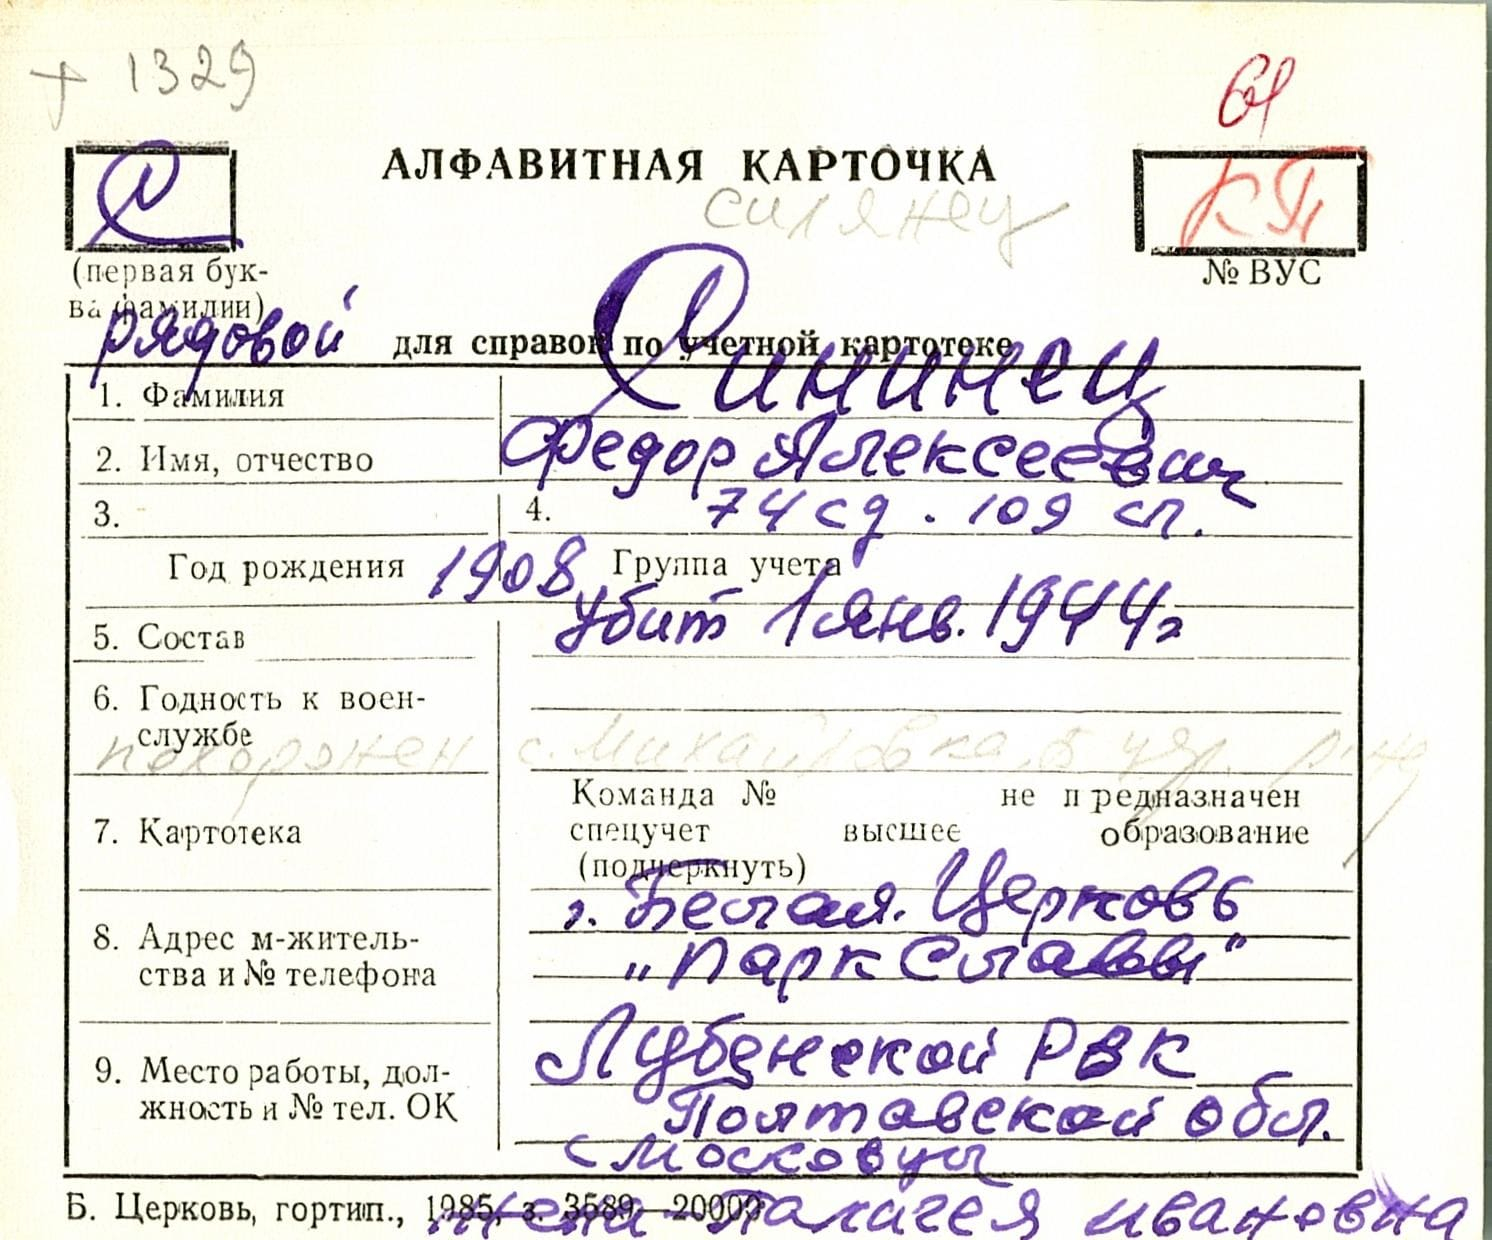 + 1329
61
С
АЛФАВИТНАЯ КАРТОЧКА
КП
силянец
(первая бук-
ва фамилии)
№ ВУС
рядовой
для справок по учетной картотеке
1. Фамилия Сининец
2. Имя, отчество Федор Алексеевич
3. 4. 74 сд. 109 сп.
Год рождения 1908 Группа учета
убит 1 янв. 1944 г
5. Состав
6. Годность к воен-
службе
похоронен с. Михайловка, Б Цер. р-на
Команда № не предназначен
7. Картотека спецучет высшее образование
(подчеркнуть)
г. Белая. Церковь
8. Адрес м-житель-
ства и № телефона
"Парк Славы"
Лубенской РВК
9. Место работы, дол-
жность и № тел. ОК
Полтавской обл.
с Московцы
Б. Церковь, гортип., 1985, з. 3589—20000
жена Палагея Ивановна